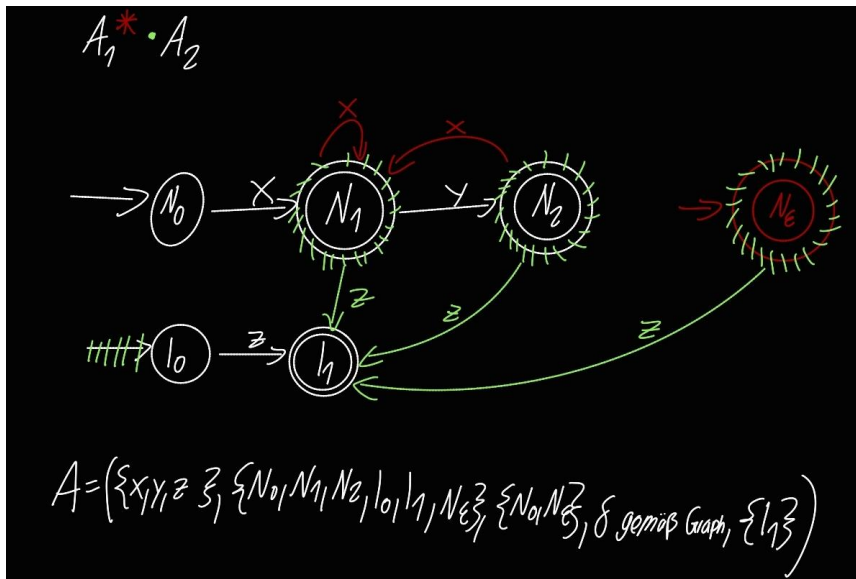 A₁* · A₂
x x
N₀ X N₁ Y N₂ Nε
z z z
l₀ z l₁
A=({x,y,z}, {N₀,N₁,N₂,l₀,l₁,Nε}, {N₀,Nε}, δ gemäß Graph, {l₁})